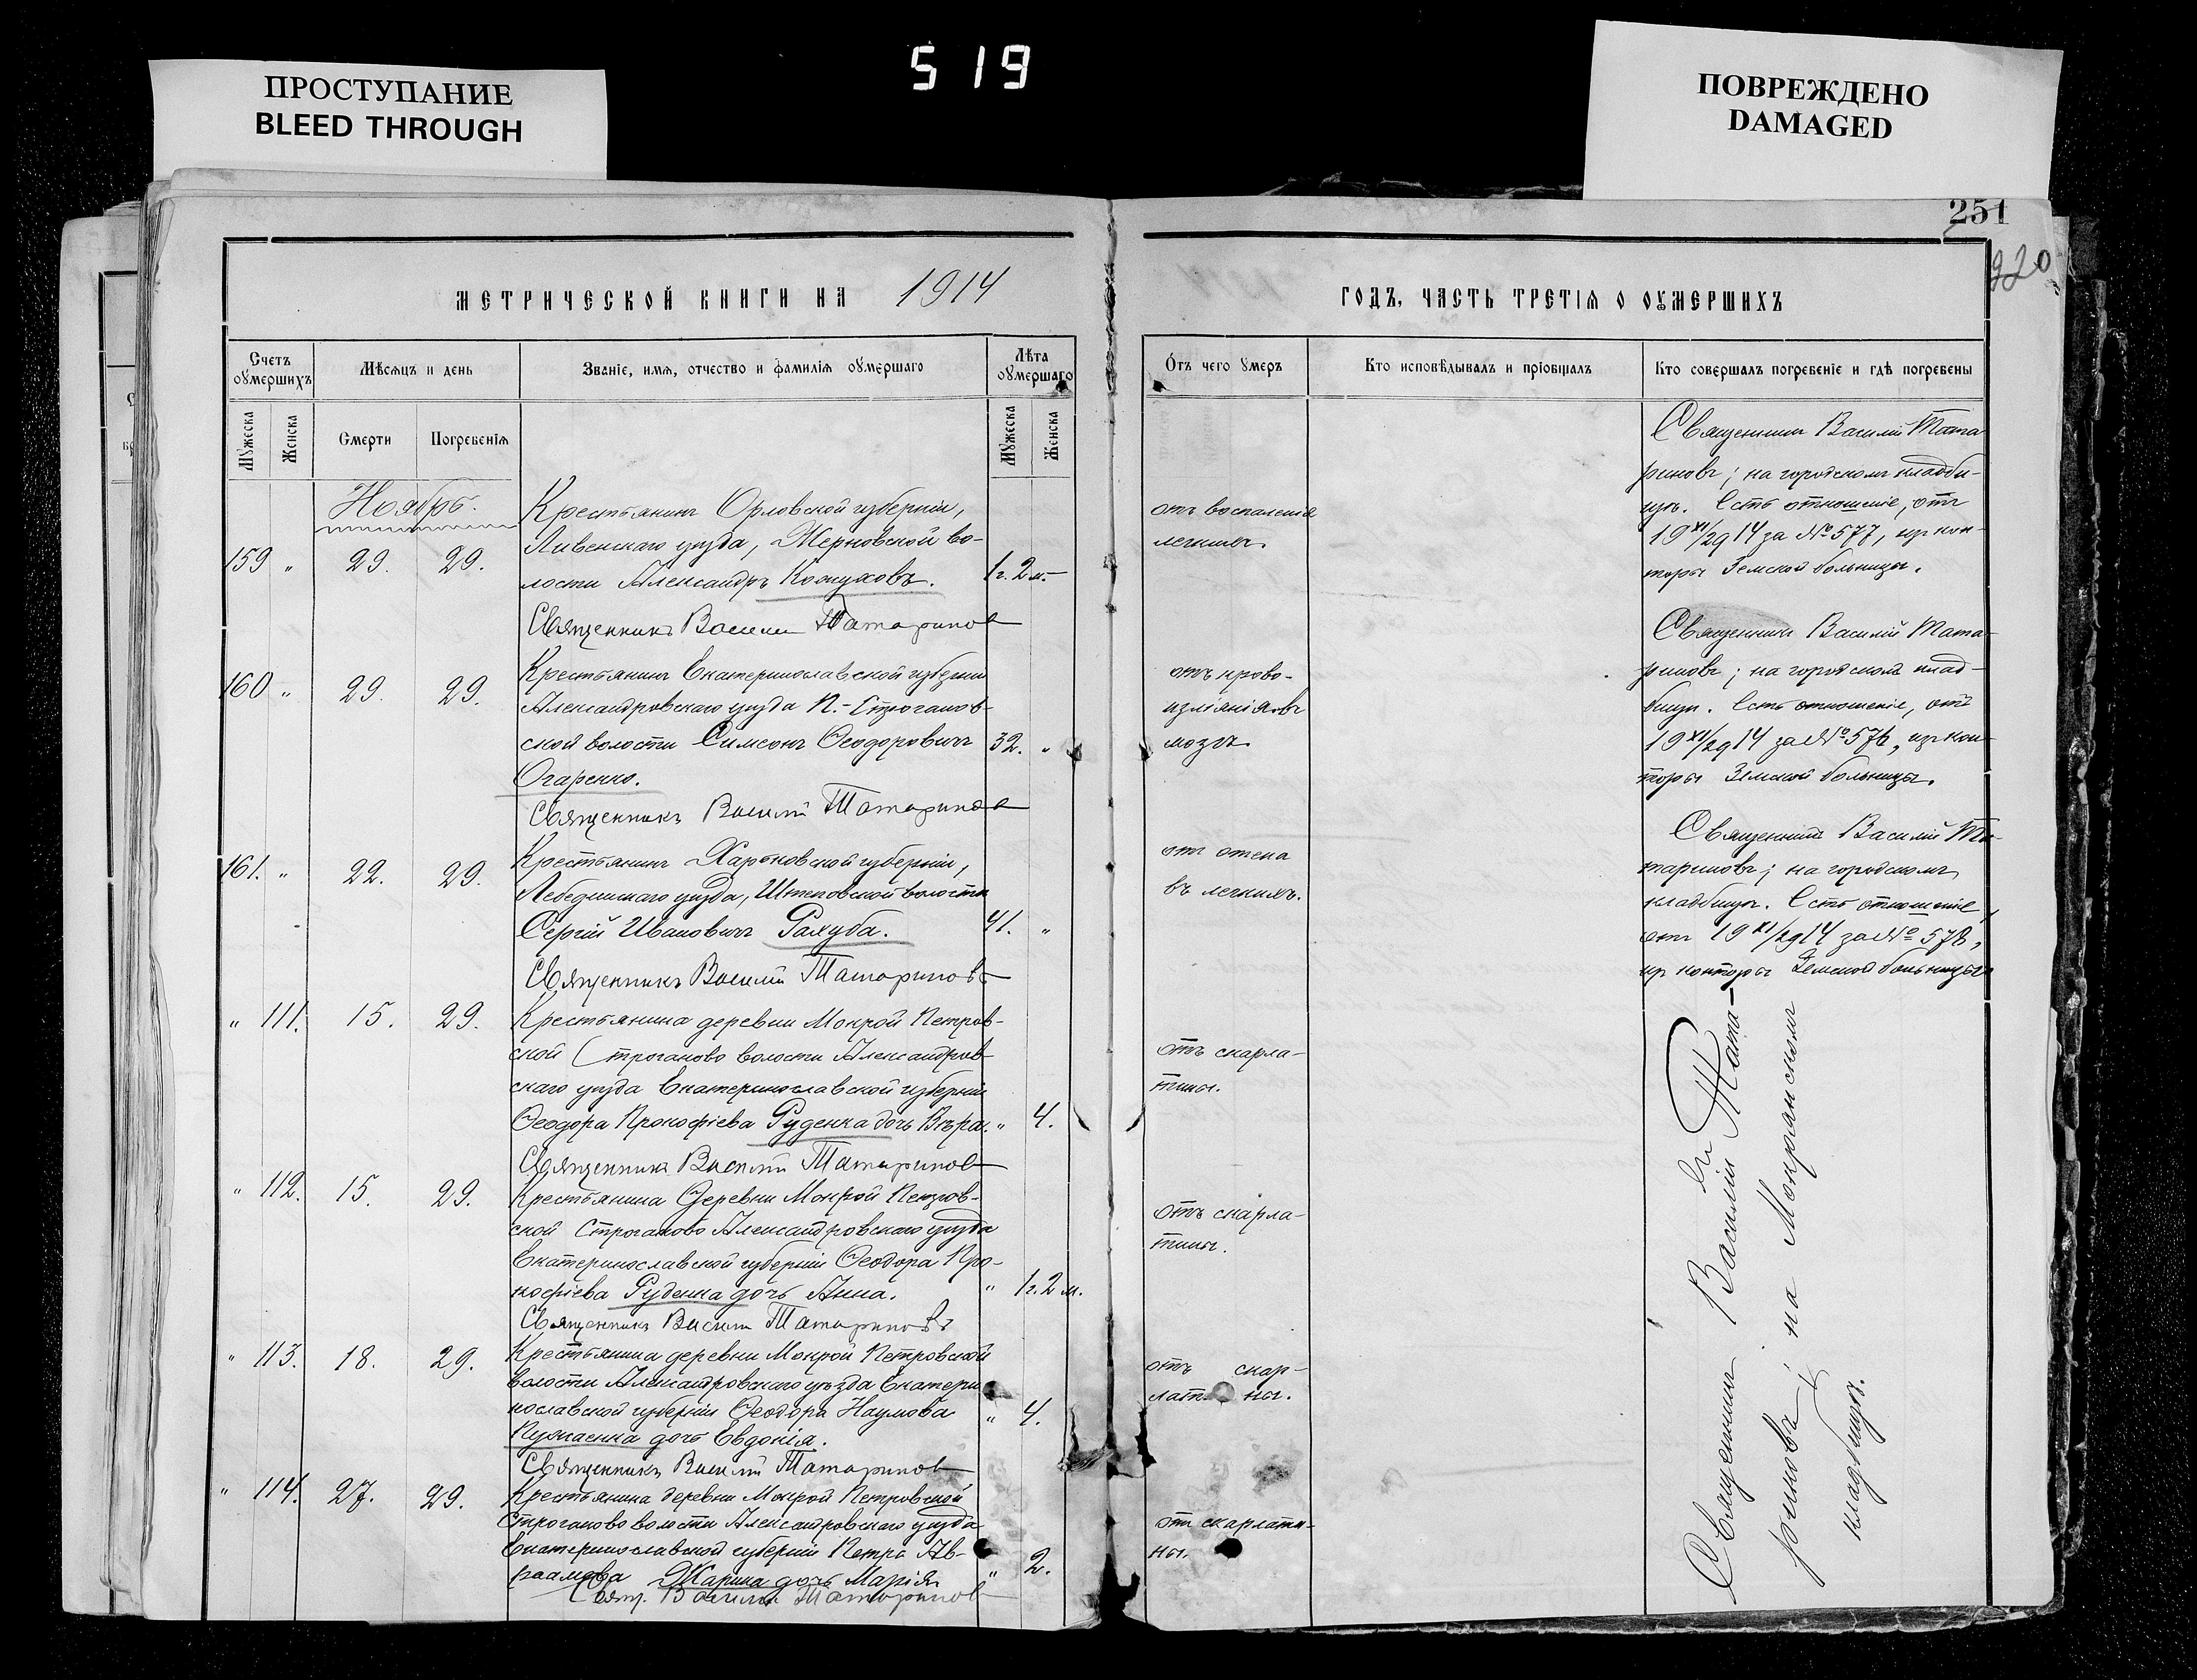 519
ПРОСТУПАНИЕ
BLEED THROUGH
ПОВРЕЖДЕНО
DAMAGED
251
220
МЕТРИЧЕСКОЙ КНИГИ НА 1914
Счетъ оумершихъ
Мѣсяцъ и день
Званіе, имя, отчество и фамилія оумершаго
Лѣта оумершаго
Мужеска
Женска
Смерти
Погребенія
Мужеска
Женска
Ноябрь.
159 " 29. 29. 1г. 2м.
Крестьянинъ Орловской губерніи,
Ливенскаго уѣзда, Жерновской во-
лости Александръ Кожуховъ.
Священникъ Василій Татариновъ
160 " 29. 29. 32. "
Крестьянинъ Екатеринославской губерніи
Александровскаго уѣзда П.-Строганов-
ской волости Симеонъ Ѳеодоровичъ
Огаренко.
Священникъ Василій Татариновъ
161. " 22. 29. 41. "
Крестьянинъ Харьковской губерніи,
Лебединскаго уѣзда, Штеповской волости
Сергій Ивановичъ Рахуба.
Священникъ Василій Татариновъ
" 111. 15. 29. " 4.
Крестьянина деревни Мокрой Петров-
ской Строганово волости Александров-
скаго уѣзда Екатеринославской губерніи
Ѳеодора Прокофіева Руденка дочь Вѣра.
Священникъ Василій Татариновъ
" 112. 15. 29. " 1г. 2м.
Крестьянина деревни Мокрой Петров-
ской Строганово Александровскаго уѣзда
Екатеринославской губерніи Ѳеодора Про-
кофіева Руденка дочь Анна.
Священникъ Василій Татариновъ
" 113. 18. 29. " 4.
Крестьянина деревни Мокрой Петровской
волости Александровскаго уѣзда Екатери
нославской губерніи Ѳеодора Наумова
дочь Евдокія.
Священникъ Василій Татариновъ
" 114. 27. 29. " 2.
Крестьянина деревни Мокрой Петровской
Строганово волости Александровскаго уѣзда
Екатеринославской губерніи Петра Ав-
раамова Жарика дочь Марія
Свящ. Василій Татариновъ
ГОДЪ, ЧАСТЬ ТРЕТІЯ О ОУМЕРШИХЪ
Отъ чего умеръ
Кто исповѣдывалъ и пріобщалъ
Кто совершалъ погребеніе и гдѣ погребены
отъ воспаленія
легкихъ.
Священникъ Василій Тата-
риновъ; на городскомъ кладби-
щѣ. Есть отношеніе, отъ
19 XI/29 14 за № 577, изъ кон-
торы Земской больницы.
отъ крово-
изліянія въ
мозгъ.
Священникъ Василій Тата-
риновъ; на городскомъ клад-
бищѣ. Есть отношеніе, отъ
19 XI/29 14 за № 576, изъ кон-
торы Земской больницы.
отъ отека
въ легкихъ.
Священникъ Василій Та-
тариновъ; на городскомъ
кладбищѣ. Есть отношеніе,
отъ 19 XI/29 14 за № 578,
изъ конторы Земской больницы
отъ скарла-
тины.
отъ скарла-
тины.
отъ скар-
латины.
отъ скарлати-
ны.
Священникъ Василій Тата-
риновъ; на Мокрянскомъ
кладбищѣ.